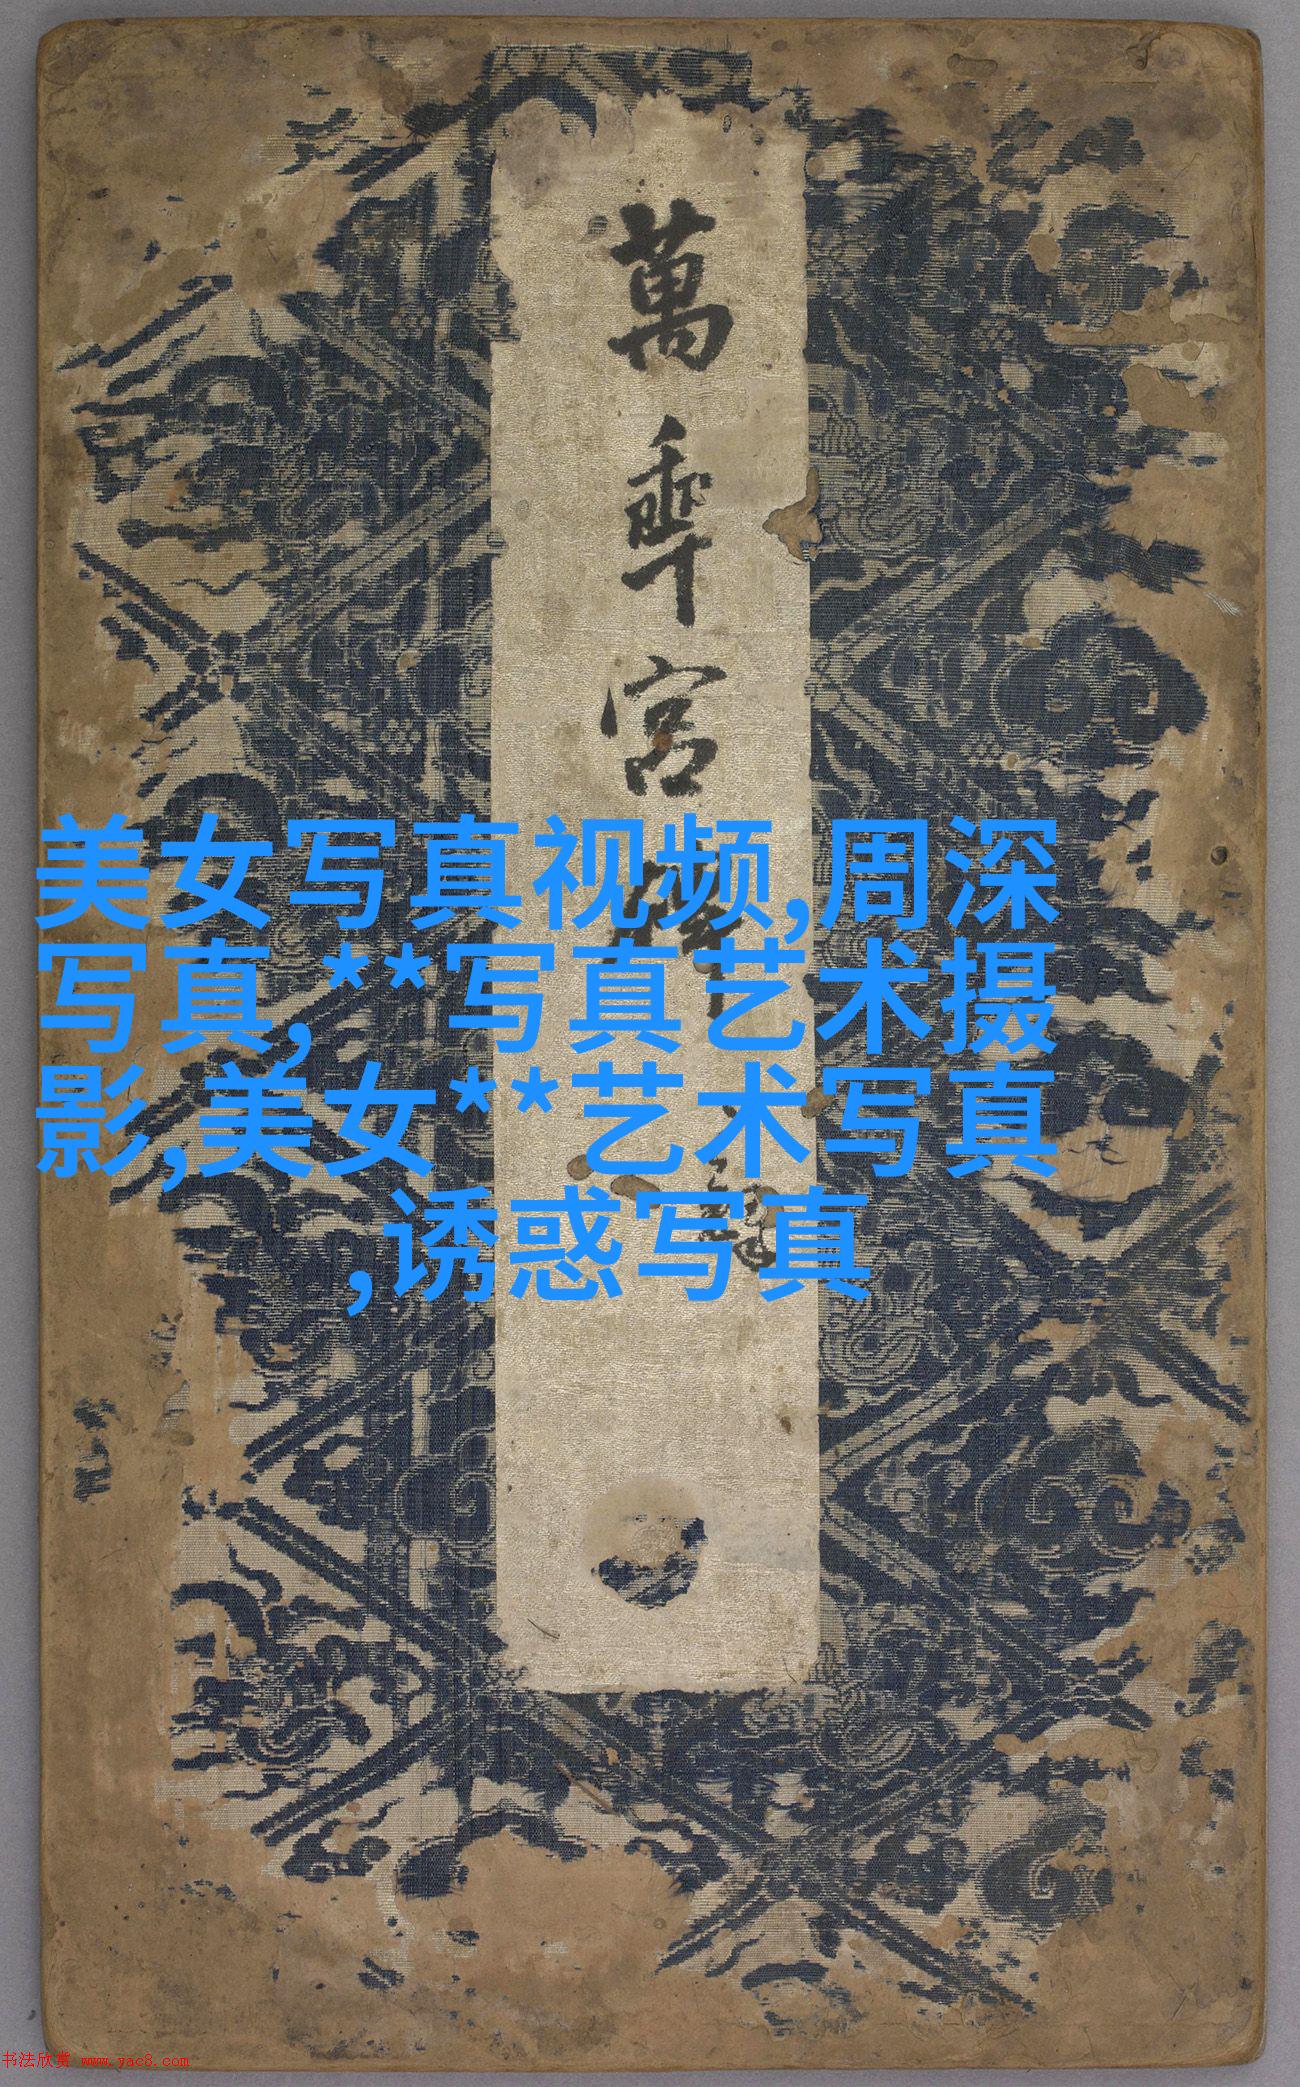 萬年宮
美女写真视频,周深
写真,**写真艺术摄
影,美女**艺术写真
,诱惑写真
书法欣赏 www.yac8.com